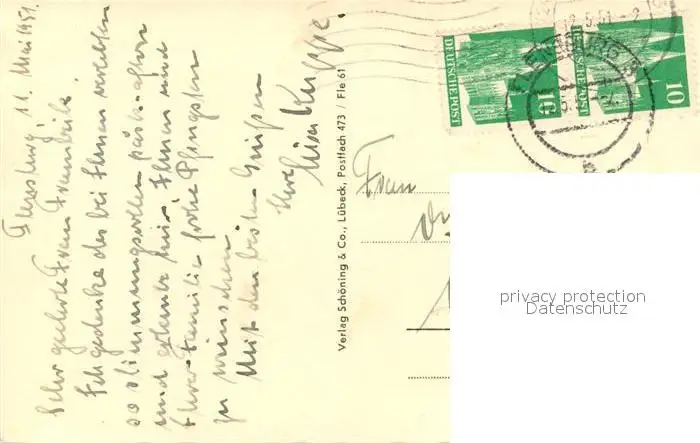 Flensburg, 11. Mai 1951.
Sehr geehrte Frau
Ich gedenke des bei Ihnen verlebten
so stimmungsvollen
und erlaube mir Ihnen und
Ihrer Familie frohe Pfingsten
zu wünschen
Mit den besten Grüßen
Ihre
Verlag Schöning & Co., Lübeck, Postfach 473 / Fle 61
DEUTSCHE POST
10
DEUTSCHE POST
10
FLENSBURG
Frau
privacy protection
Datenschutz